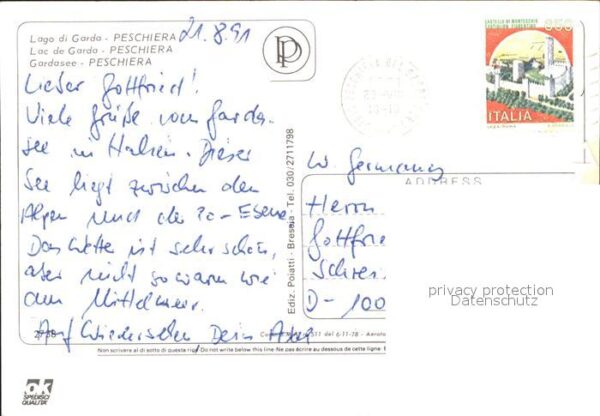 Lago di Garda - PESCHIERA
Lac de Garda - PESCHIERA
Gardasee - PESCHIERA
21.8.91
Lieber Gottfried!
Viele Grüße vom Garda-
see in Italien. Dieser
See liegt zwischen den
Alpen und der Po-Ebene.
Das Wetter ist sehr schön,
aber nicht so warm wie
am Mittelmeer.
Auf Wiedersehen, Dein Axel
Non scrivere al di sotto di questa riga / Do not write below this line - Ne pas écrire au dessous de cette ligne
ok
SPEDISCI
QUALITA'
Ediz. Poiatti - Brescia - Tel. 030/2711798
CASTELLO DI MONTECCHIO
CASTIGLION FIORENTINO
ITALIA
W Germany
ADDRESS
Herrn
Gottfrie
D-100
privacy protection
Datenschutz